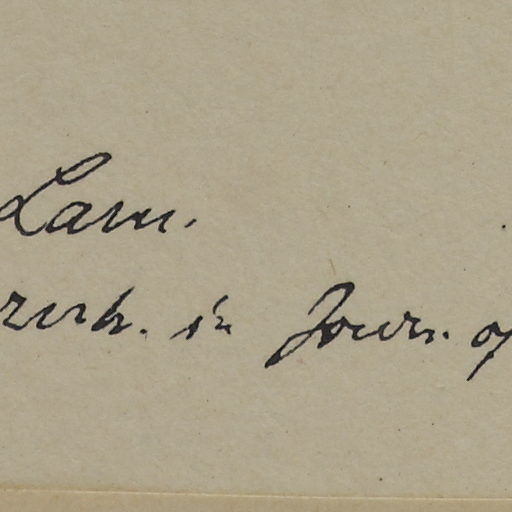 Lam.
in Journ. of